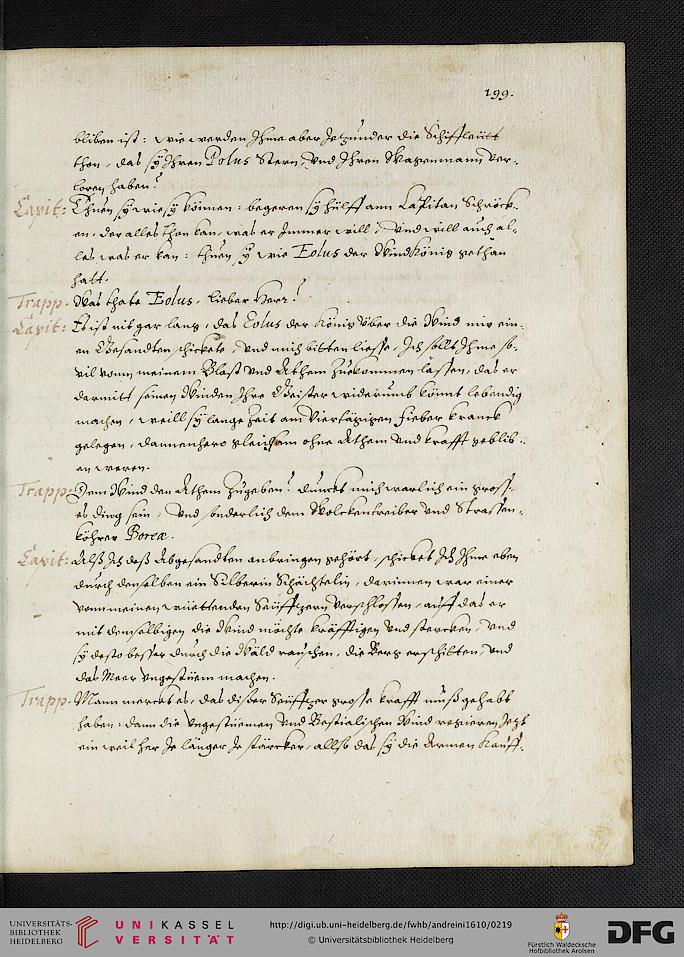 199.
bliben ist: wie werden Ihme aber Jetzunder die Schiffleütt
thon, das sÿ Ihren Polus Stern, Vnd Ihren Wagenmann ver-
loren haben?
Capit: Thuen sÿ wie sÿ können: begeren sÿ hülff ann Capitan Schröck-
en, der alles thon kan, was er Immer will, Vnd will auch al-
les was er kan: thuen sÿ wie Eolus der Windkönig gethan
hatt.
Trapp. Was thate Eolus, lieber Herr?
Capit: Es ist nit gar lang, das Eolus der König über die Wind mir ein-
en Gesandten schickete, Vnd mich bitten liesse, Ich sollt Ihme so-
vil vonn meinem Blast Vnd Athem zukommen lassen, das er
darmitt seinen Winden Ihre Geister widerumb könnt lebendig
machen, weill sÿ lange Zeit am Viertägigen fieber kranck
gelegen, dannenhero gleichsam ohne Athem Vnd krafft geblib-
en weren.
Trapp: Dem Wind den Athem Zugeben? dunckt mich warlich ein gross-
es ding sein, Vnd sonderlich dem Wolckentreiber Vnd Strassen-
köhrer Boreæ.
Capit: Alß Ich deß Abgesandten anbringen gehört, schicket Ich Ihme eben
durch denselben ein Silberin Schächtelin, darinnen war einer
vonn meinen wüettenden Seüfftzern Verschlossen, auff das er
mit demselbigen die Wind möchte kräfftigen Vnd stercken, Vnd
sÿ desto besser durch die Wäld rauschen, die Berg erschitten, Vnd
das Meer Vngestüem machen.
Trapp. Mann mercket es, das diser Seüfftzer grosse krafft muß gehabt
haben: dann die Vngestüemen Vnd Bestialischen Wind regieren Jetzt
ein weil her Je länger Je stärcker, allso das sÿ die Armen Kauff-
UNIVERSITÄTS-
BIBLIOTHEK
HEIDELBERG
UNIKASSEL
VERSITÄT
http://digi.ub.uni-heidelberg.de/fwhb/andreini1610/0219
© Universitätsbibliothek Heidelberg
Fürstlich Waldecksche
Hofbibliothek Arolsen
DFG